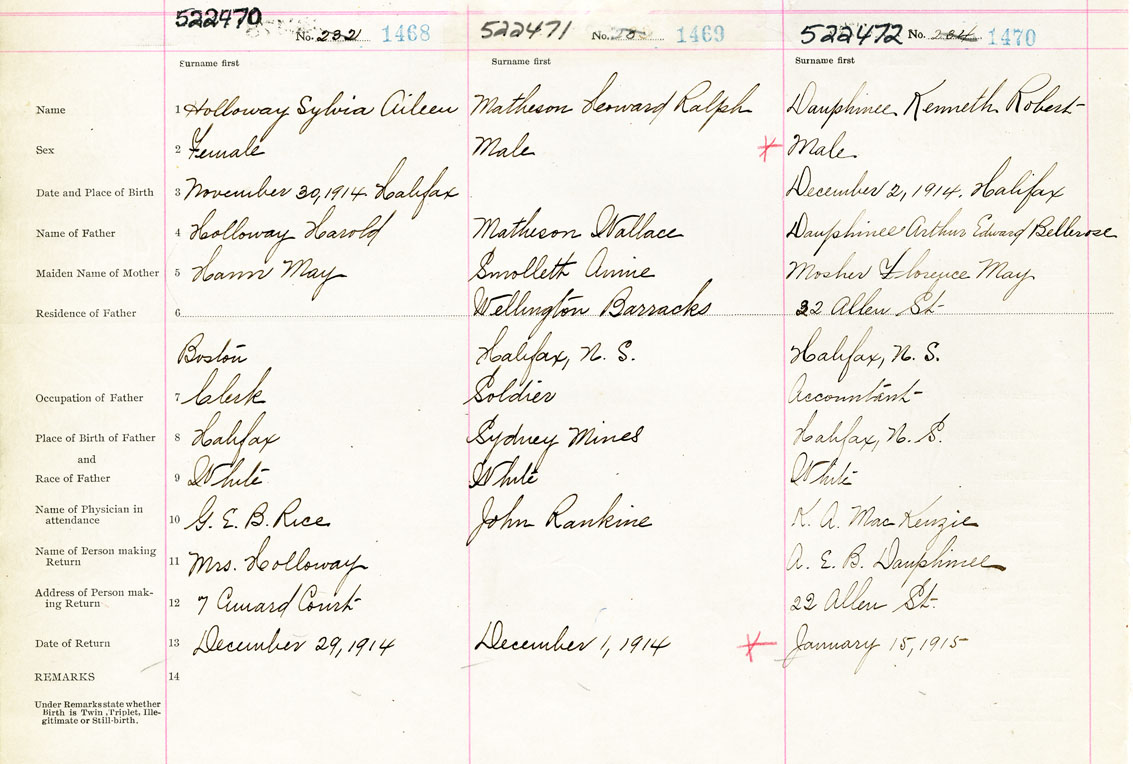 522470 522471 522472
No. 232 1468 No. 1469 No. 234 1470
Surname first Surname first Surname first
Name 1 Holloway Sylvia Aileen Matheson Howard Ralph Dauphinee Kenneth Robert
Sex 2 Female Male Male
Date and Place of Birth 3 November 30, 1914 Halifax December 2, 1914. Halifax
Name of Father 4 Holloway Harold Matheson Wallace Dauphinee Arthur Edward Bellerose
Maiden Name of Mother 5 Hann May Smolleth Annie Mosher Florence May
Residence of Father 6 Wellington Barracks 32 Allen St
Boston Halifax, N. S. Halifax, N. S.
Occupation of Father 7 Clerk Soldier Accountant
Place of Birth of Father 8 Halifax Sydney Mines Halifax, N. S.
and
Race of Father 9 White White White
Name of Physician in
attendance 10 G. E. B. Rice John Rankine K. A. MacKenzie
Name of Person making
Return 11 Mrs. Holloway A. E. B. Dauphinee
Address of Person mak-
ing Return 12 7 Cunard Court 22 Allen St.
Date of Return 13 December 29, 1914 December 1, 1914 January 15, 1915
REMARKS 14
Under Remarks state whether
Birth is Twin, Triplet, Ille-
gitimate or Still-birth.